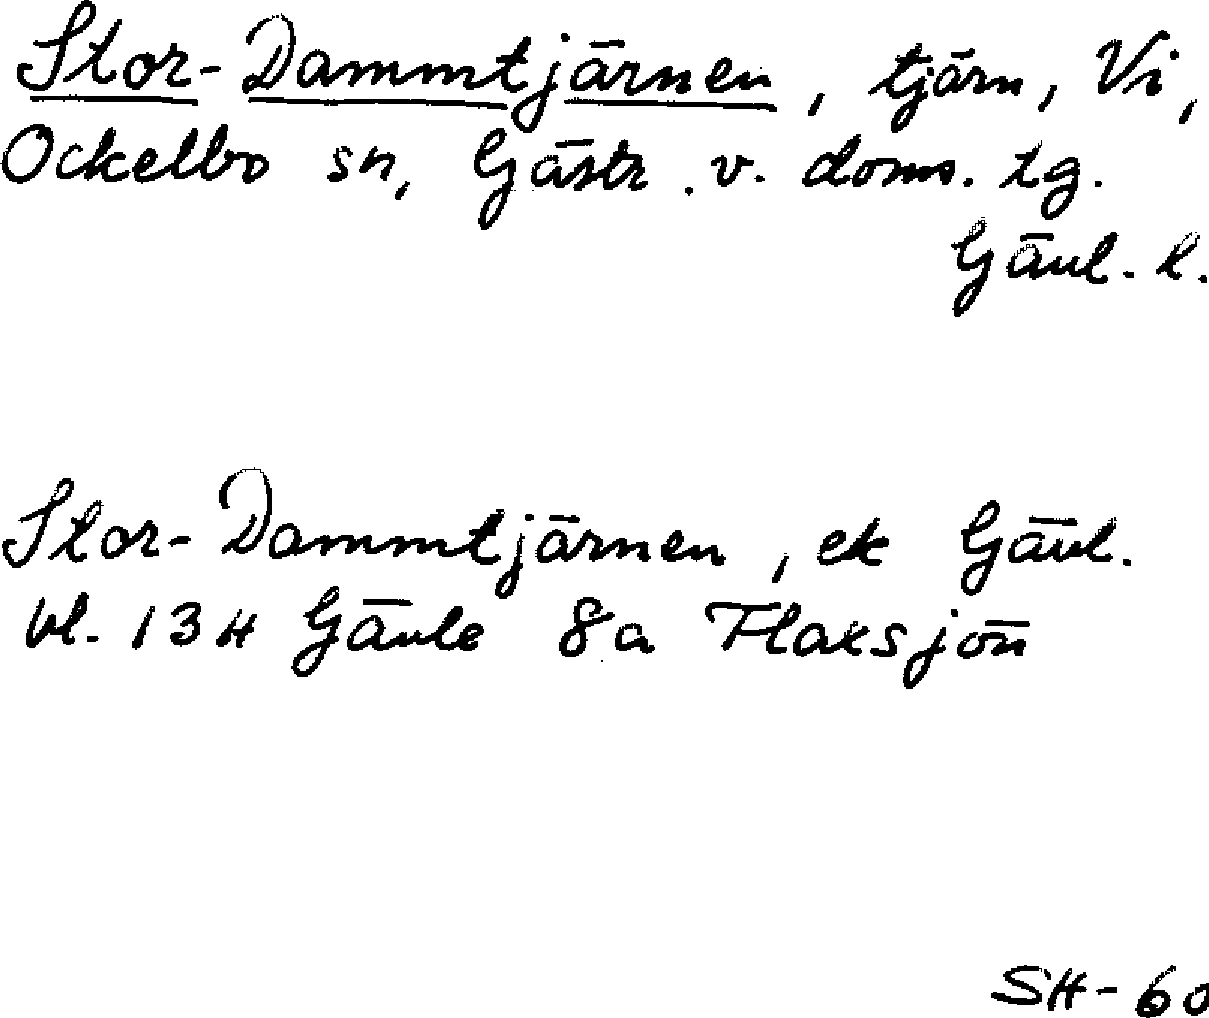 Stor-Dammtjärnen, tjärn, Vi,
Ockelbo sn, Gästr. v. doms. tg.
Gävl. l.
Stor-Dammtjärnen, ek Gävl.
bl. 13H Gävle 8a Flaksjön
SH-60